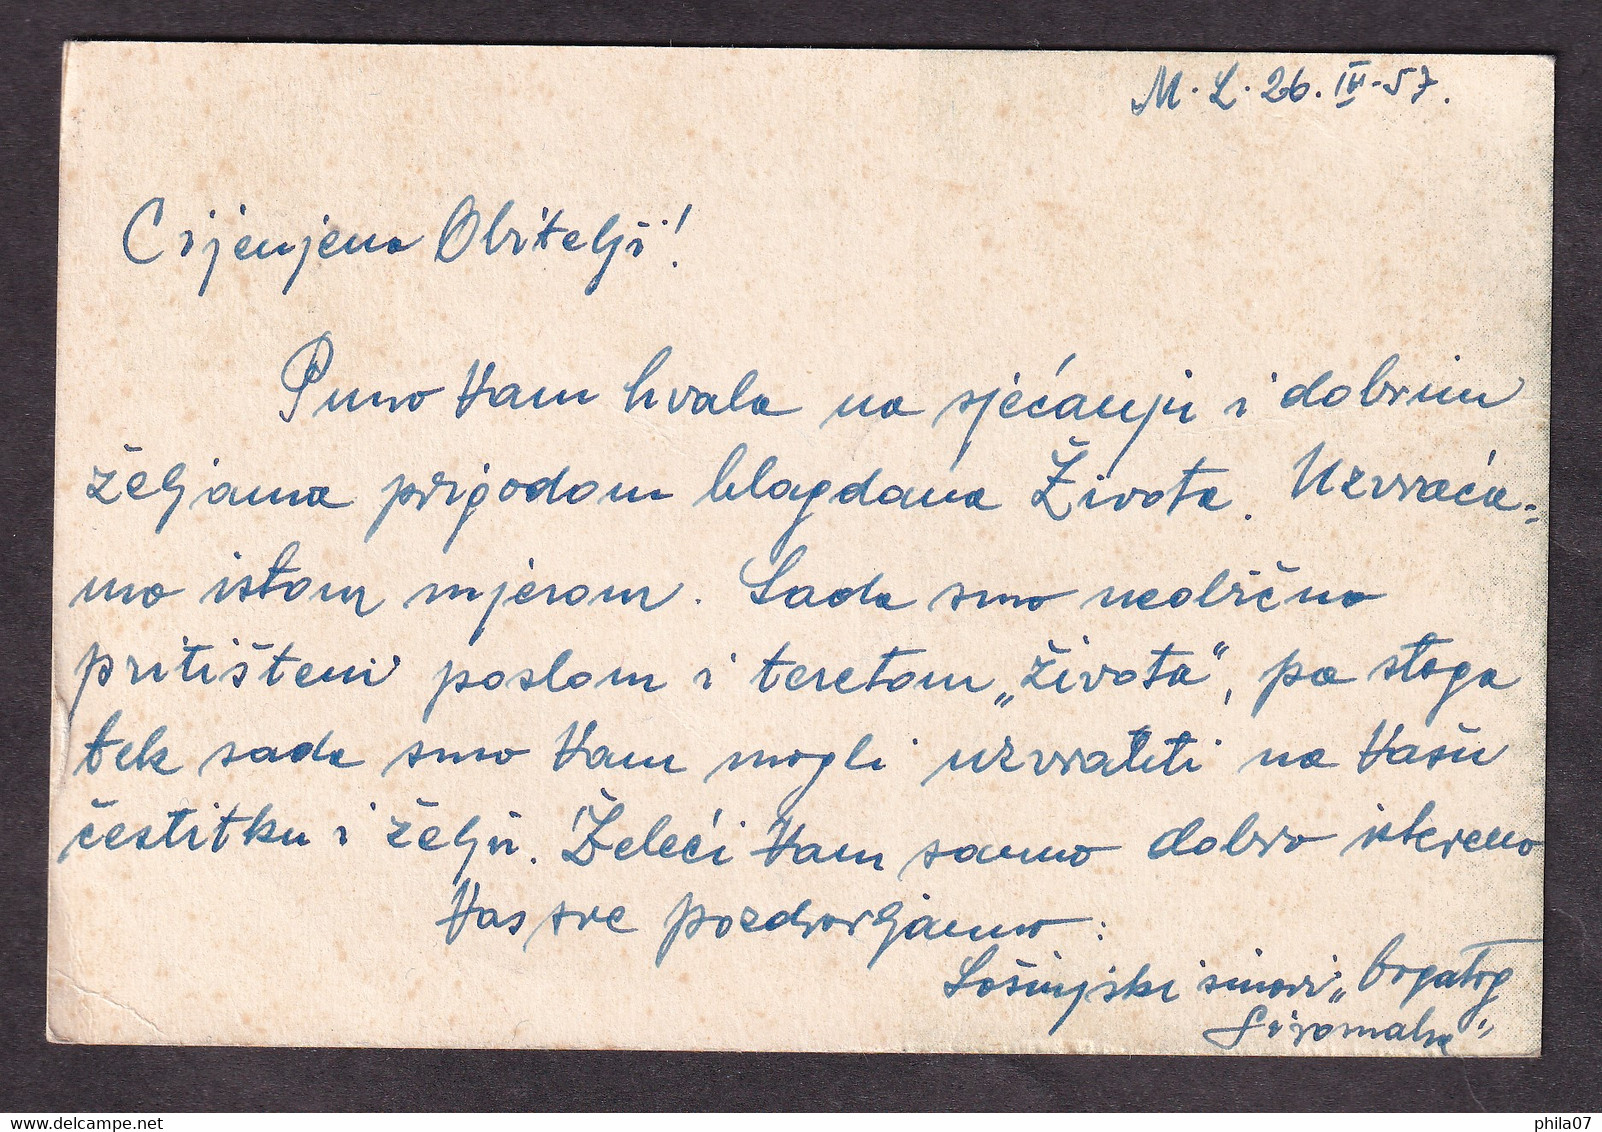 M. L. 26. IV - 57.
Cijenjena Obitelji!
Puno Vam hvala na sjećanju i dobrim
željama prigodom blagdana Života. Uzvraća-
mo istom mjerom. Sada smo neobično
pritišteni poslom i teretom „života“, pa stoga
tek sada smo Vam mogli uzvratiti na Vašu
čestitku i želju. Želeći Vam samo dobro iskreno
Vas sve pozdravljamo:
Lošinjski sinovi „bogatog
Siromaha“
phila07